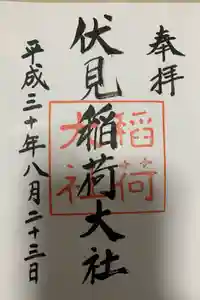 奉拝
伏見稲荷大社
稲荷
大社
平成三十年八月二十三日